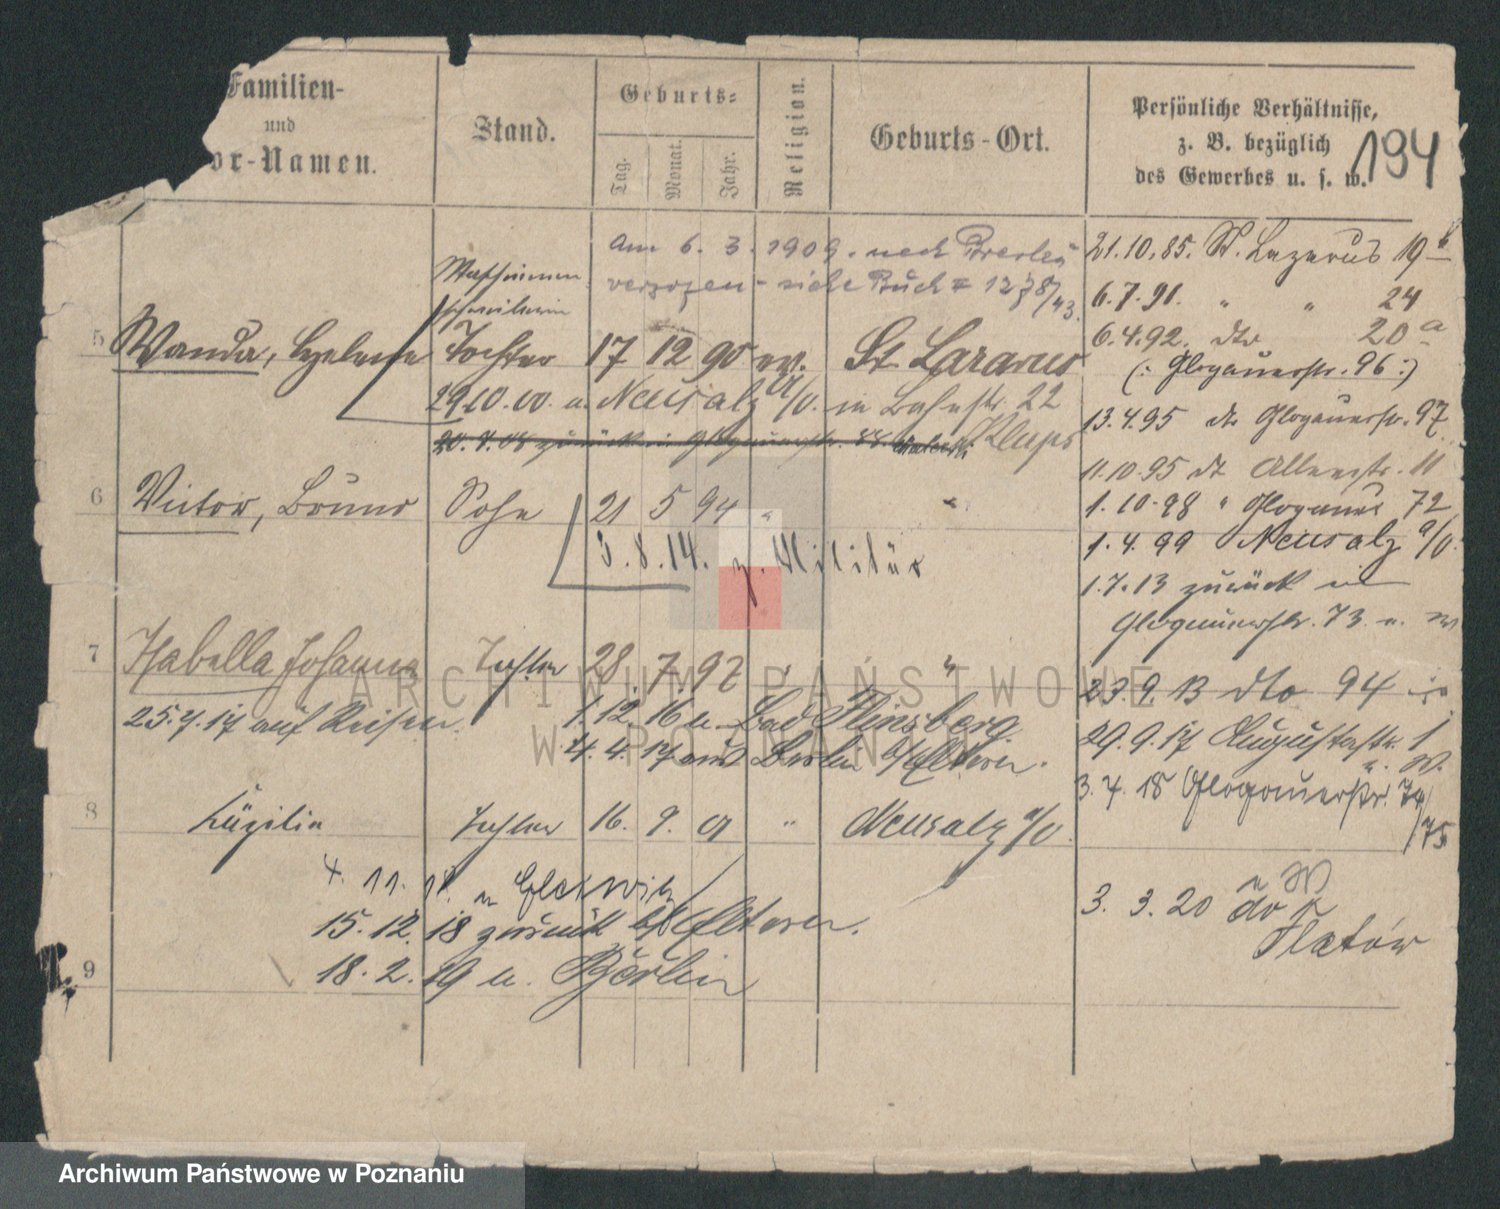 Familien-
und
or-Namen.
Stand.
Geburts-
Tag.
Monat.
Jahr.
Religion.
Geburts-Ort.
Persönliche Verhältnisse,
z. B. bezüglich
des Gewerbes u. s. w.
194
am 6. 3. 1909. nach Breslau
verzogen - siehe Buch 1278/43.
21.10.85. St. Lazarus 19b
6.7.91. " " 24
6.4.92. dto 20a
(: Glogauerstr. 96 :)
13.4.95 dto Glogauerstr. 97
11.10.95 dt Allerstr. 11
1.10.98 " Glogauer 72
1.4.99 Neusalz a/O.
1.7.13 zurück in
Glogauerstr. 73
23.9.13 dto 94
29.9.17 Augustastr. 1
3.7.18 Glogauerstr. 74/75
3. 3. 20
Flatow
5 Wanda, Helene Tochter 17 12 90 ev. St. Lazarus
29.10.00 a. Neusalz a/O. in Bahnstr. 22
6 Victor, Bruno Sohn 21 5 94 " "
3.8.14. z. Militär
7 Isabella Johanna Tochter 28 7 97 " "
25.7.17 auf Reisen.
1.12.16 n. Bad Flinsberg
4.4.17 aus Berlin b/Eltern.
8 Cäzilie Tochter 16. 9. 01 " Neusalz a/O.
15.12.18 zurück b/Eltern.
9 18.2.19 n. Berlin
ARCHIWUM PAŃSTWOWE
W POZNANIU
Archiwum Państwowe w Poznaniu